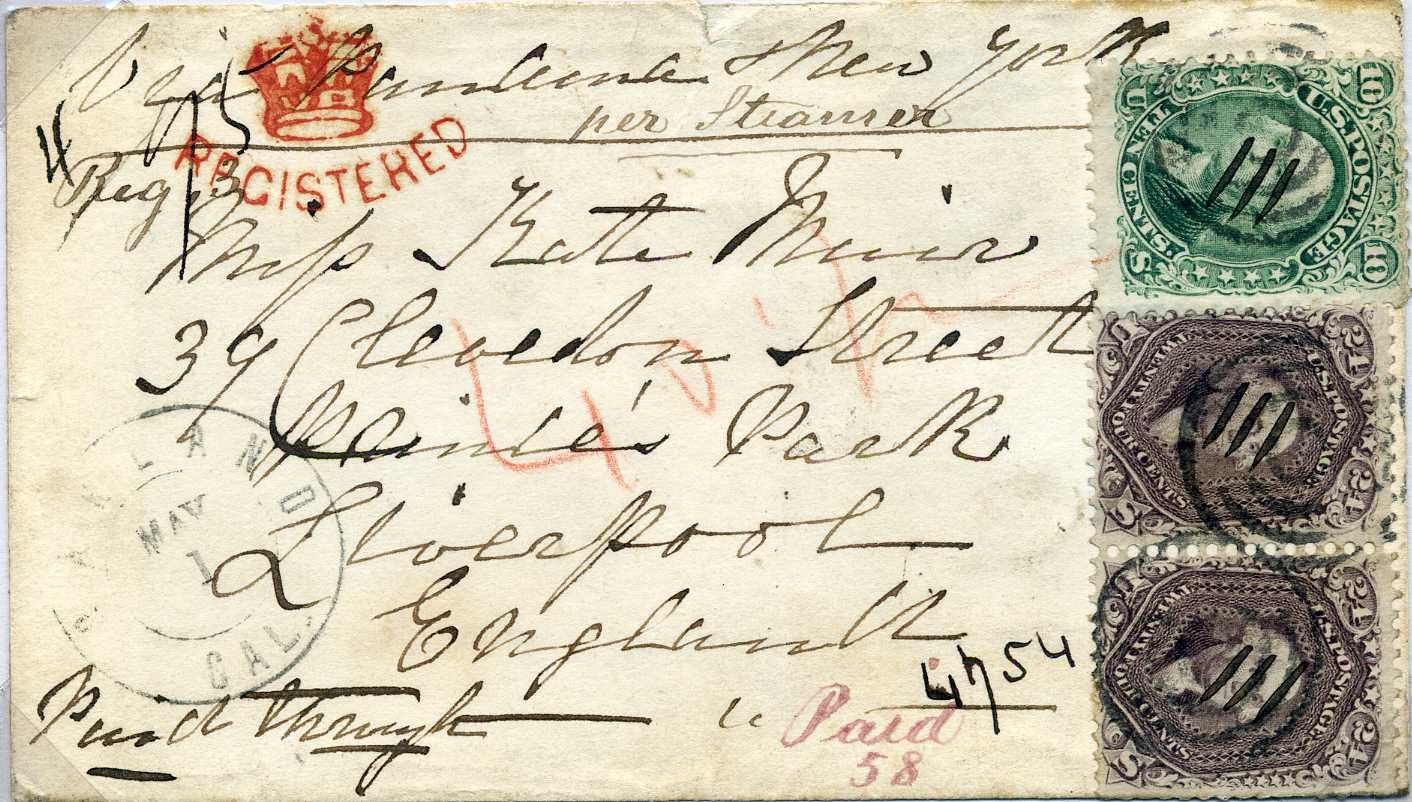 Via Panama & New York
per Steamer
REGISTERED
Reg 3
Miss Kate Muir
39 Clevedon Street
Prince's Park
Liverpool
England
Paid through
Paid
58
4754
OAKLAND
MAY
1
CAL.
U.S. POSTAGE
TEN CENTS.
10
10
U S
U.S. POSTAGE
TWENTY FOUR CENTS
24
24
U S
U.S. POSTAGE
TWENTY FOUR CENTS
24
24
U S